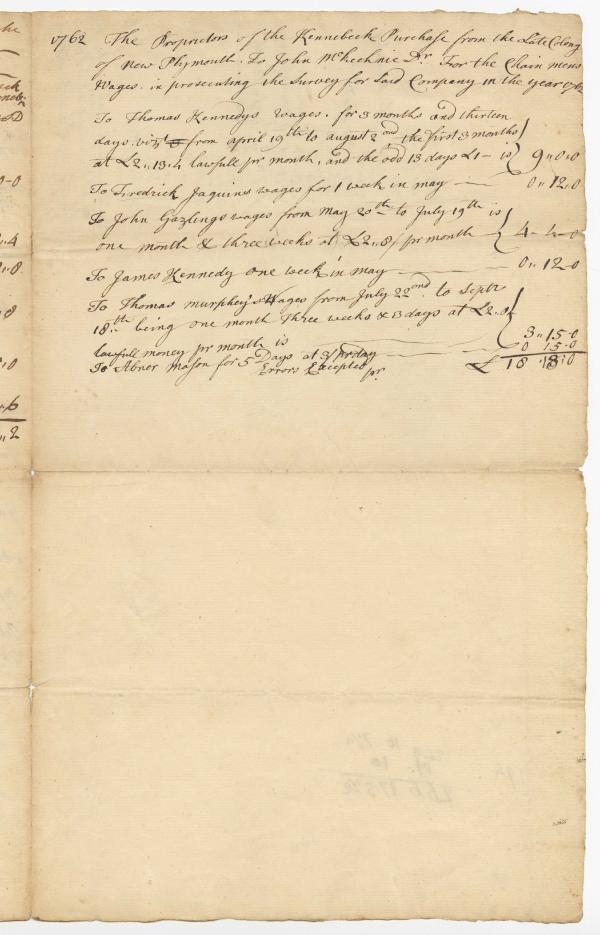 1762 The Proprietors of the Kennebeck Purchase from the Late Colony
of New Plymouth. To John McKechnie Dr. For the Chain mens
Wages. in prosecuting the Survey for Said Company in the year 1762
To Thomas Kennedys wages. for 3 months and thirteen
days. vizt from april 19th to august 2nd the first 3 months
at £2,,13,,4 lawfull pr month, and the odd 13 days £1 — is 9,,0,,0
To Fredrick Jaquins wages for 1 week in may — 0,,12,,0
To John Gazlings wages from May 20th to July 19th is
one month & three weeks at £2,,8/ pr month — 4-4-0
To James Kennedy one week in may — 0,,12-0
To Thomas murphey's Wages from July 22nd to Septr
18th being one month three weeks & 3 days at £2..0
lawfull money pr month is 3,,15.0
To Abner mason for 5 Days at 3/ pr day — 0 15.0
Errors Excepted pr £ 18 18:0